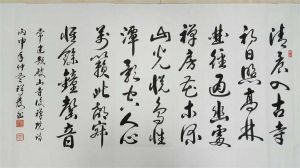 清晨入古寺
初日照高林
曲徑通幽處
禪房花木深
山光悦鳥性
潭影空人心
萬籟此都寂
惟餘鐘磬音
常建題破山寺後禪院詩
丙申年仲夏